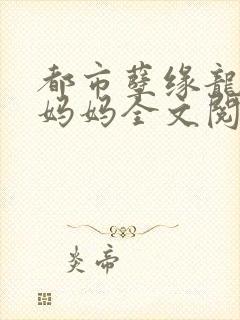 都市孽缘龍
妈妈全文阅
炎帝